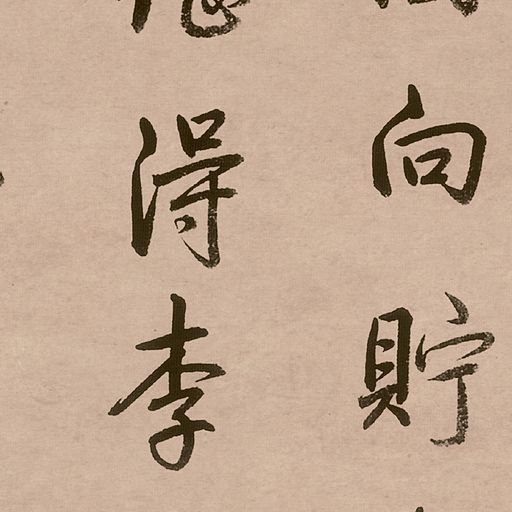 向貯
得李